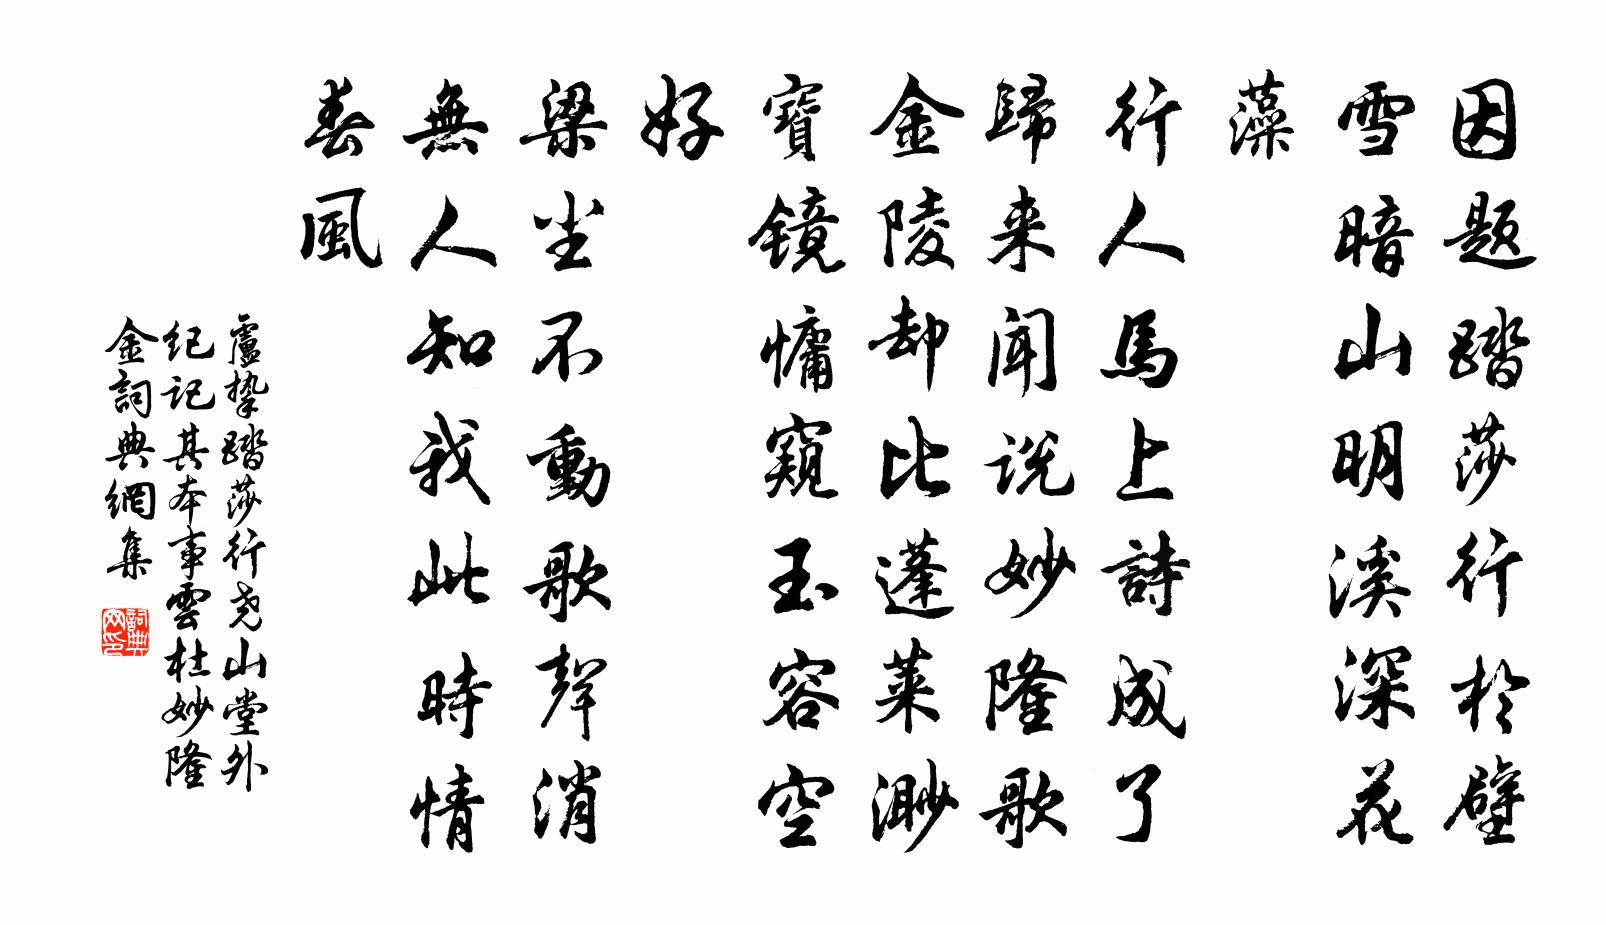 因题踏莎行於壁
雪暗山明溪深花
藻
行人馬上詩成了
歸来闻说妙隆歌
金陵却比蓬莱渺
寶镜慵窺玉容空
好
梁尘不動歌聲消
無人知我此時情
春風
盧挚踏莎行尧山堂外
纪记其本事雲杜妙隆
金詞典網集
詞典
网印